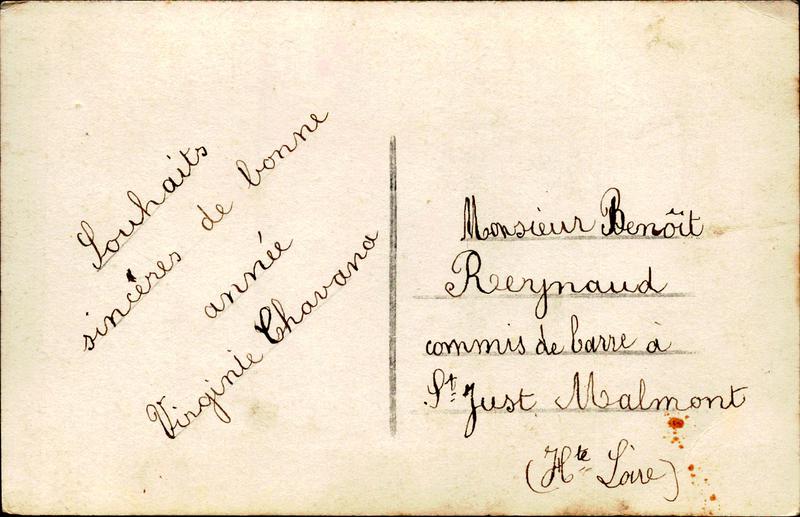 Souhaits
sincères de bonne
année
Virginie Chavana
Monsieur Benoît
Reynaud
commis de barre à
St Just Malmont
(Hte Loire)